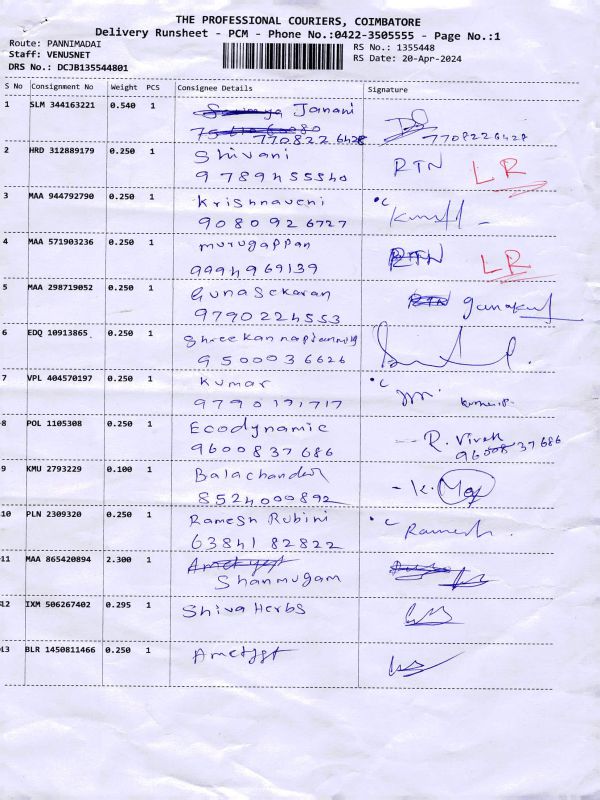 THE PROFESSIONAL COURIERS, COIMBATORE
Delivery Runsheet - PCM - Phone No.:0422-3505555 - Page No.:1
Route: PANNIMADAI
RS No.: 1355448
Staff: VENUSNET
RS Date: 20-Apr-2024
DRS No.: DCJB135544801
S No Consignment No Weight PCS Consignee Details Signature
1 SLM 344163221 0.540 1 Janani
7708226428 7708226428
2 HRD 312889179 0.250 1 Shivani RTN LR
9789455540
3 MAA 944792790 0.250 1 Krishnaveni
9080926727
4 MAA 571903236 0.250 1 murugappan RTN LR
9994969139
5 MAA 298719052 0.250 1 Gunasekaran RTN
9790224553
6 EDQ 10913865 0.250 1
9500036626
7 VPL 404570197 0.250 1 Kumar
9790191717
8 POL 1105308 0.250 1 Ecodynamic R. Vivek
9600837686 9600837686
9 KMU 2793229 0.100 1 Balachander
8524000892
10 PLN 2309320 0.250 1 Ramesh Rubini Ramesh
6384182822
11 MAA 865420894 2.300 1
Shanmugam
12 IXM 506267402 0.295 1 Shiva Herbs
13 BLR 1450811466 0.250 1